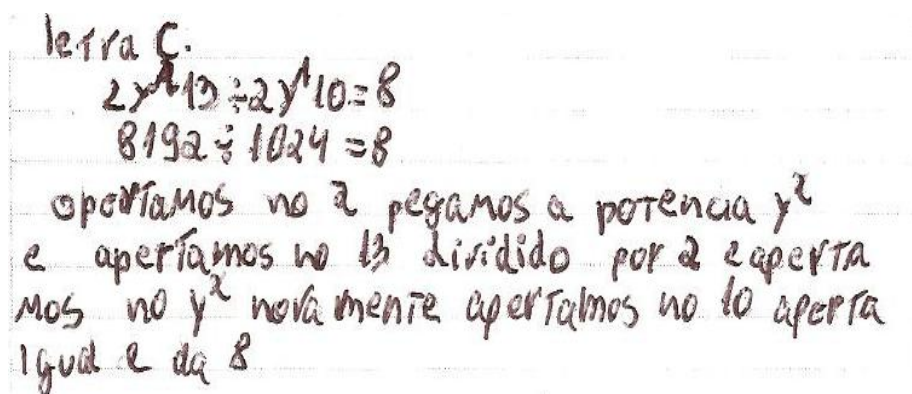 letra C.
2y^x13÷2y^x10=8
8192÷1024=8
apertamos no 2 pegamos a potencia y^x
e apertamos no 13 dividido por 2 e aperta
mos no y^x novamente apertamos no 10 aperta
igual e da 8